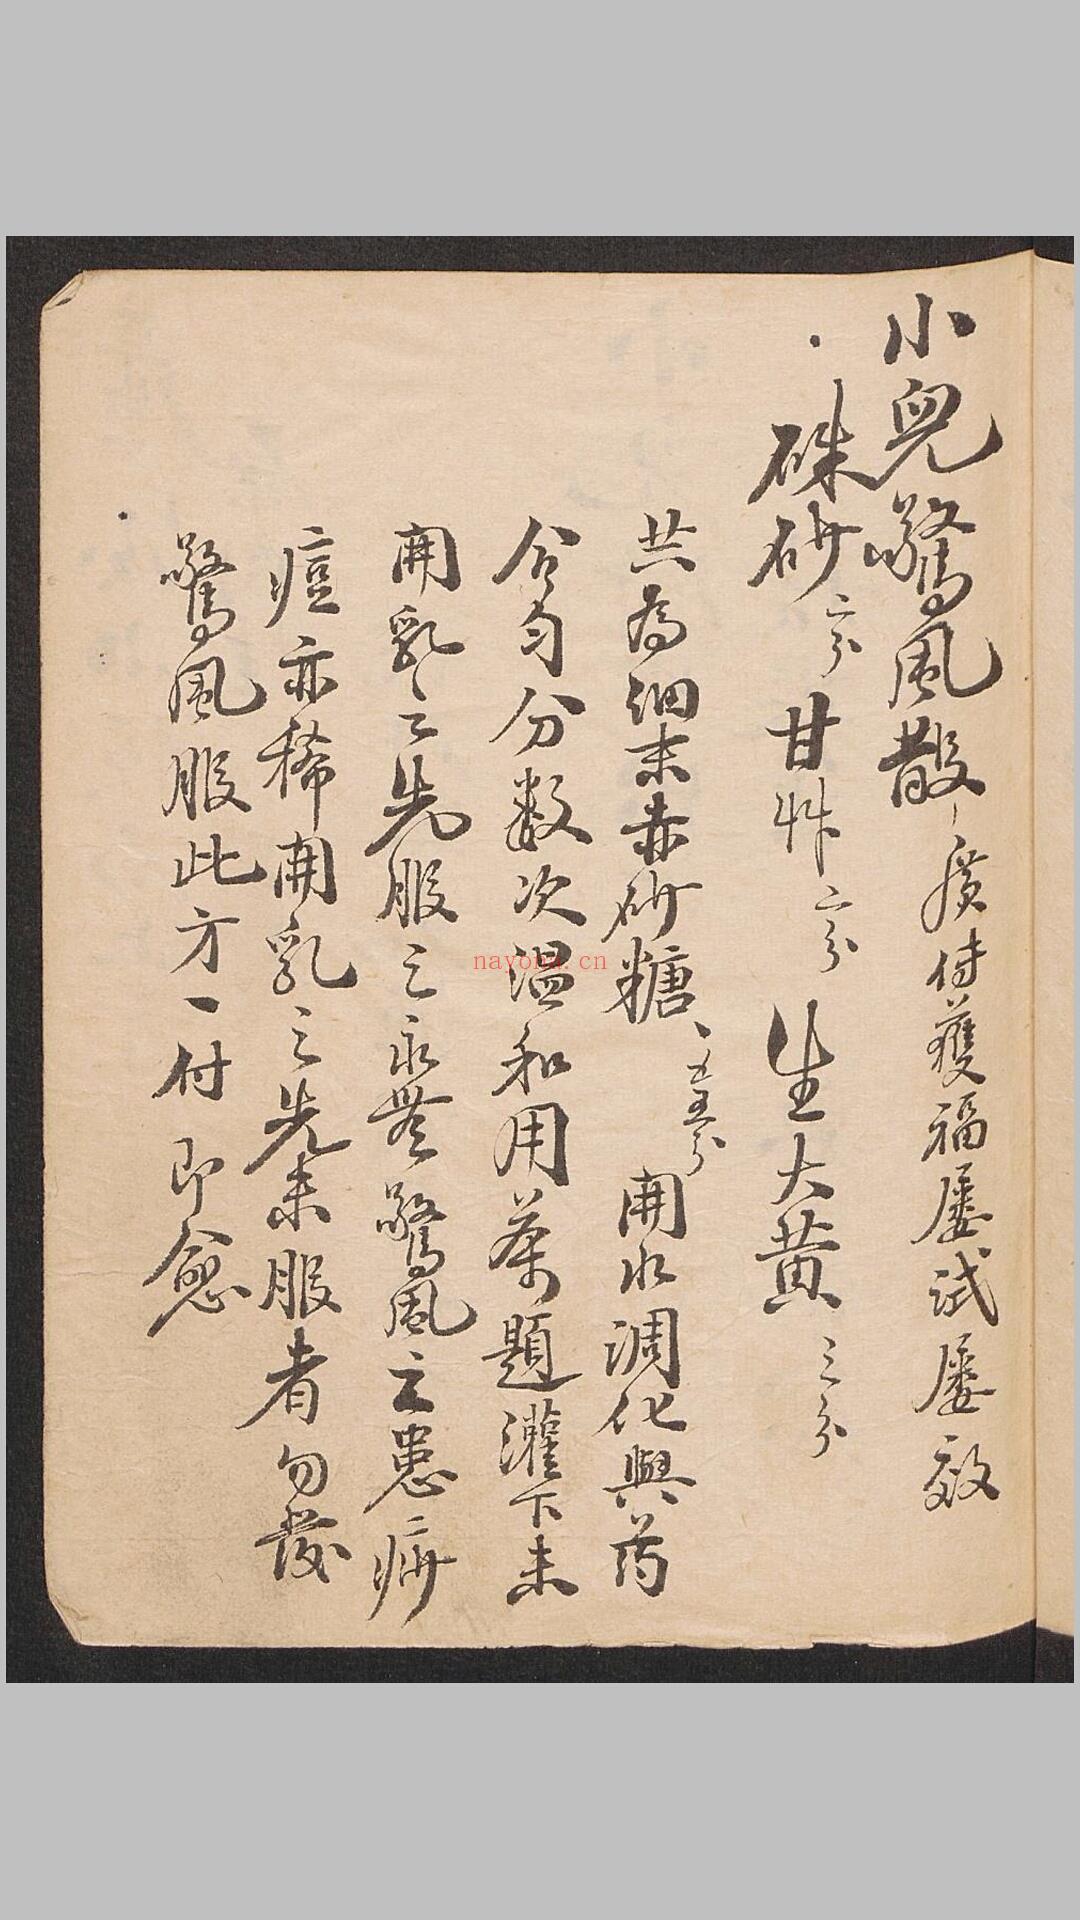 小兒驚風散廣付獲福屡試屡效
硃砂二分甘艸二分生大黄三分
共為細末赤砂糖五分開水調化與药
合匀分数次温和用茶題灌下未
開乳之先服之永無驚風之患痳
痘亦稀開乳之先未服者勿發
驚風服此方一付即愈
nayona.cn